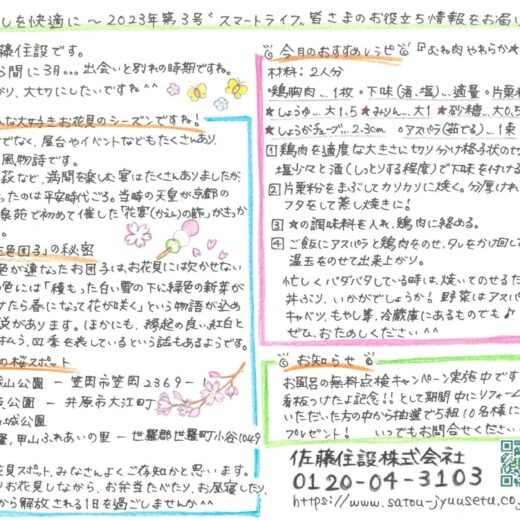 しを快適に～2023年第3号〝スマートライフ〟皆さまのお役立ち情報をお届け
藤住設です。
う間に3月…出会いと別れの時期ですね。
がり、大切にしたいですね^^
な大好きお花見のシーズンですね!
でなく、屋台やイベントなどもたくさんあり、
風物詩です。
萩など、満開を楽しむ宴はたくさんありましたが
ったのは平安時代ごろ。当時の天皇が京都の
泉苑で初めて催した「花宴(かえん)の節」がきっか
色団子」の秘密
色が連なったお団子は、お花見には欠かせない
の色には「積もった白い雪の下に緑色の新芽が
けたら春になって花が咲く」という物語が込め
説があります。ほかにも、縁起の良い紅白と
払う、四季を表しているという話もあるようです。
の桜スポット
山公園 ー 笠岡市笠岡2369-
公園 ー 井原市大江町
城公園
甲山ふれあいの里 ー 世羅郡世羅町小谷1049
花見スポット、みなさんよくご存知かと思います。
お花見しながら、お弁当たべたり、お昼寝したり、
から解放される1日を過ごしませんか^^
今月のおすすめレシピ『むね肉やわらか
材料：2人分
・鶏胸肉…1枚 ○下味(酒、塩)…適量 ○片栗粉
★しょうゆ…大1.5 ★みりん…大1 ★砂糖…大0.5
★しょうがチューブ…2.3cm ○アスパラ(茹でる)…1束
1 鶏肉を適度な大きさに切り分け格子状の切
塩少々と酒(しっとりする程度)で下味を付ける
2 片栗粉をまぶしてカリカリに焼く。分厚けれ
フタをして蒸し焼きに!
3 ★の調味料を入れ、鶏肉に絡める。
4 ご飯にアスパラと鶏肉をのせ、タレをかけ回して
温玉をのせて出来上がり。
忙しくバタバタしている時は、焼いてのせるだ
丼ぶり、いかがでしょうか! 野菜はアスパ
キャベツ、もやし等、冷蔵庫にあるものでも♪
ぜひ、おためしください^^
お知らせ
お風呂の無料点検キャンペーン実施中です
看板つけたよ記念!!として期間中にリフォーム
いただいた方の中から抽選で5組10名様に
プレゼント! いつでもお問合せください
佐藤住設株式会社
0120-04-3103
https://www.satou-jyuusetu.co.j